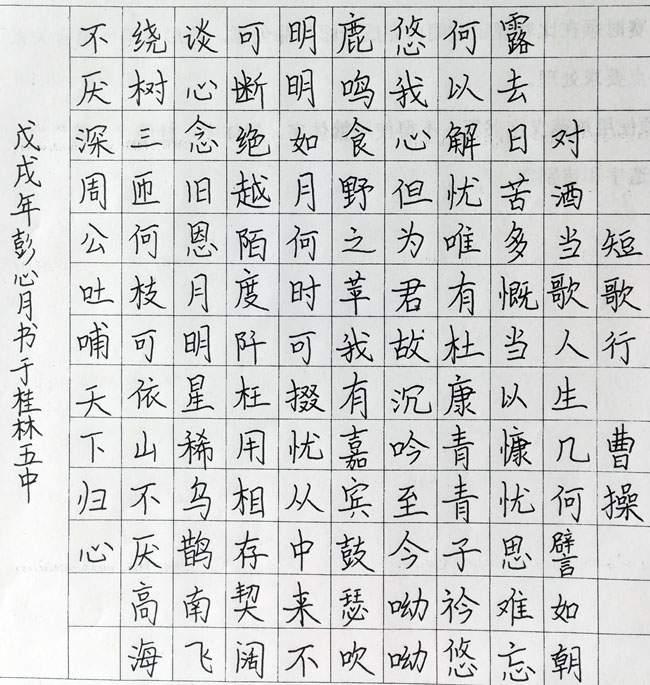 短歌行 曹操
对酒当歌人生几何譬如朝
露去日苦多慨当以慷忧思难忘
何以解忧唯有杜康青青子衿悠
悠我心但为君故沉吟至今呦呦
鹿鸣食野之苹我有嘉宾鼓瑟吹
明明如月何时可掇忧从中来不
可断绝越陌度阡枉用相存契阔
谈心念旧恩月明星稀乌鹊南飞
绕树三匝何枝可依山不厌高海
不厌深周公吐哺天下归心
戊戌年彭心月书于桂林五中